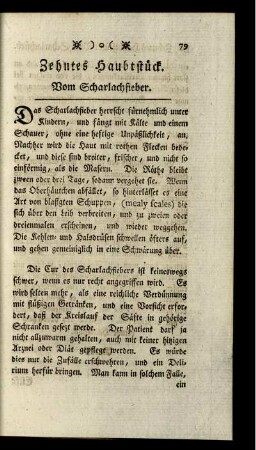 )o( 79
Zehntes Haubtstück.
Vom Scharlachfieber.
Das Scharlachfieber herrscht fürnehmlich unter
Kindern, und fängt mit Kälte und einem
Schauer, ohne eine heftige Unpäßlichkeit, an.
Nachher wird die Haut mit rothen Flecken bede-
cket, und diese sind breiter, frischer, und nicht so
einförmig, als die Masern. Die Röthe bleibt
zween oder drei Tage, sodann vergehet sie. Wenn
das Oberhäutchen abfällt, so hinterlässet es eine
Art von blaßgten Schuppen, (mealy scales) die
sich über den Leib verbreiten, und zu zweien oder
dreienmalen erscheinen, und wieder weggehen.
Die Kehlen- und Halsdrüsen schwellen öfters auf,
und gehen gemeiniglich in eine Schwärung über.
Die Cur des Scharlachfiebers ist keineswegs
schwer, wenn es nur recht angegriffen wird. Es
wird selten mehr, als eine reichliche Verdünnung
mit flüßigen Getränken, und eine Vorsicht erfor-
dert, daß der Kreislauf der Säfte in gehörige
Schranken gesezt werde. Der Patient darf ja
nicht allzuwarm gehalten, auch mit keiner hitzigen
Arznei oder Diät gepflegt werden. Es würde
dies nur die Zufälle erschwehren, und ein Deli-
rium herfür bringen. Man kann in solchem Falle,
ein